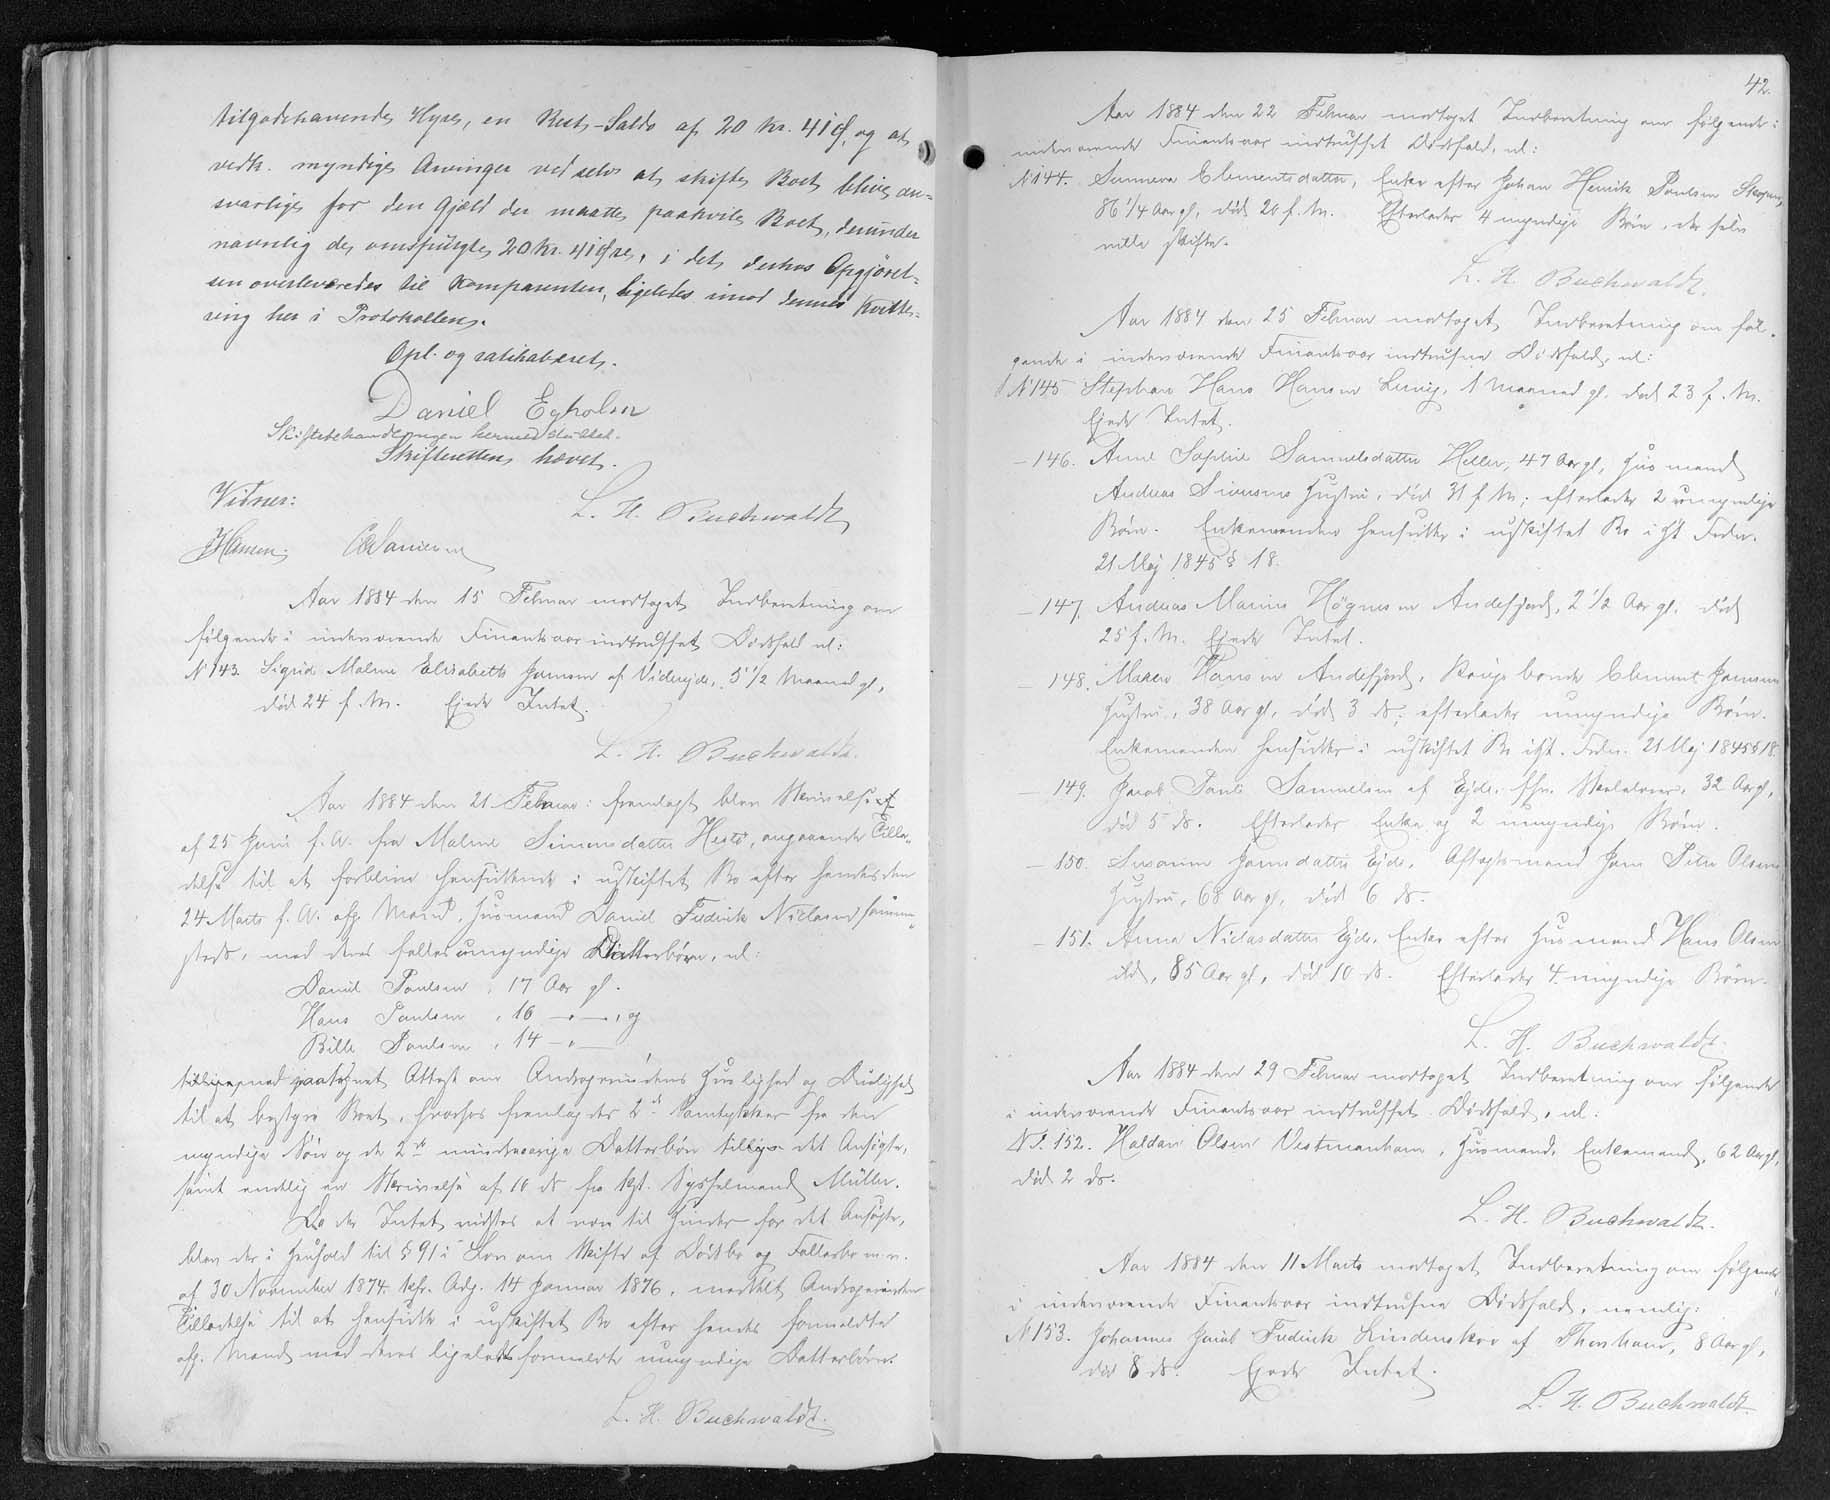 tilgodehavendes Hyre, en Rest-Saldo af 20 Kr. 41 Ø, og at
vedk. myndige Arvinger ved selv at skifte Boet blive an-
svarlige for den Gjæld der maatte paahvile Boet, derunder
navnlig de omspurgte 20 Kr. 41 Øre, i det derhos Opgjørel-
sen overleveredes til Komparenten, ligeledes imod dennes Kvitte-
ring her i Protokollen.
Opl. og ratihaberet.
Daniel Egholm
Skiftebehandlingen hermed sluttet.
Skifteretten hævet.
Vidner:
L. H. Buchwaldt
JHansen.
Aar 1884 den 15 Februar modtoges Indberetning om
følgende i indeværende Finantsaar indtruffet Dødsfald nl:
N 143. Sigrid Malene Elisabeth Jensen af Viderejde, 5 1/2 Maaned gl,
død 24 f. M. Ejede Intet.
L. H. Buchwaldt.
Aar 1884 den 21 Februar: fremlagt blev Skrivelse
af 25 Juni f. A. fra Malene Simonsdatter Hestø, angaaende Tilla-
delse til at forblive hensiddende i uskiftet Bo efter hendes den
24 Marts f. A. afg. Mand, Husmand Daniel Fredrik Niclasen samme-
steds, med deres fælles umyndige Datterbørn, nl:
Daniel Poulsen, 17 Aar gl.
Hans Poulsen, 16 —„—, og
Bille Poulsen, 14 —„—
tilligemed paategnet Attest om Andragerindens Huslighed og Duelighed
til at bestyre Boet, hvorhos fremlagdes 2de Samtykker fra den
myndige Søn og de 2de mindreaarige Datterbørn tilligen det Ansøgte,
samt endelig en Skrivelse af 16 ds fra kgt. Sysselmand Müller.
Da der Intet vidstes at være til Hinder for det Ansøgte,
blev der i Henhold til § 91 i Lov om Skifte af Dødsbo og Fællesbo m. v.
af 30 November 1874, kfr. Adg. 14 Januar 1876, meddelt Andragerinden
Tilladelse til at hensidde i uskiftet Bo efter hendes formeldte
afg. Mand med deres ligeledes formeldte umyndige Datterbørn.
L. H. Buchwaldt.
42.
Aar 1884 den 22 Februar modtoges Indberetning om følgende i
indeværende Finantsaar indtruffet Dødsfald, nl:
N 144. Sunneva Clementsdatter, Enke efter Johan Henrik Poulsen Skopun,
86 1/4 Aar gl, død 20 f. M. Efterlader 4 myndige Børn, der selv
ville skifte.
L. H. Buchwaldt.
Aar 1884 den 25 Februar modtoges Indberetning om føl-
gende i indeværende Finantsaar indtrufne Dødsfald, nl:
N 145 Stephan Hans Hansen Lervig, 1 Maaned gl. død 23 f. M.
Ejede Intet.
— 146. Anne Sophie Samuelsdatter Heller, 47 Aar gl, Husmand
Andreas Simonsens Hustru, død 31 f M; efterlader 2 umyndige
Børn. Enkemanden hensidder i uskiftet Bo iflt Frdn.
21 Maj 1845 § 18.
— 147. Andreas Marius Høgnesen Andefjord, 2 1/2 Aar gl. død
25 f. M. Ejede Intet.
— 148. Maren Hansen Andefjord, Kongsbonde Clement Joensens
Hustru, 38 Aar gl, død 3 ds; efterlader umyndige Børn.
Enkemanden hensidder i uskiftet Bo iflt. Frdn. 21 Maj 1845 § 18.
— 149. Jacob Pauli Samuelsen af Ejde, 32 Aar gl,
død 5 ds. Efterlader Enke og 2 umyndige Børn.
— 150. Susanne Joensdatter Ejde, Aftægtsmand Jens Peter Olsens
Hustru, 68 Aar gl, død 6 ds.
— 151. Anna Niclasdatter Ejde, Enke efter Husmand Hans Olsen
ibd, 85 Aar gl, død 10 ds. Efterlader 4 myndige Børn.
L. H. Buchwaldt.
Aar 1884 den 29 Februar modtoges Indberetning om følgende
i indeværende Finantsaar indtruffet Dødsfald, nl:
N. 152. Haldan Olsen Vestmanhavn, Husmand, Enkemand, 62 Aar gl,
død 2 ds.
L. H. Buchwaldt.
Aar 1884 den 11 Marts modtoges Indberetning om følgende
i indeværende Finantsaar indtrufne Dødsfald, nemlig:
N 153. Johannes Jacob Fredrik Lindenskov af Thorshavn, 8 Aar gl,
død 8 ds. Ejede Intet.
L. H. Buchwaldt.